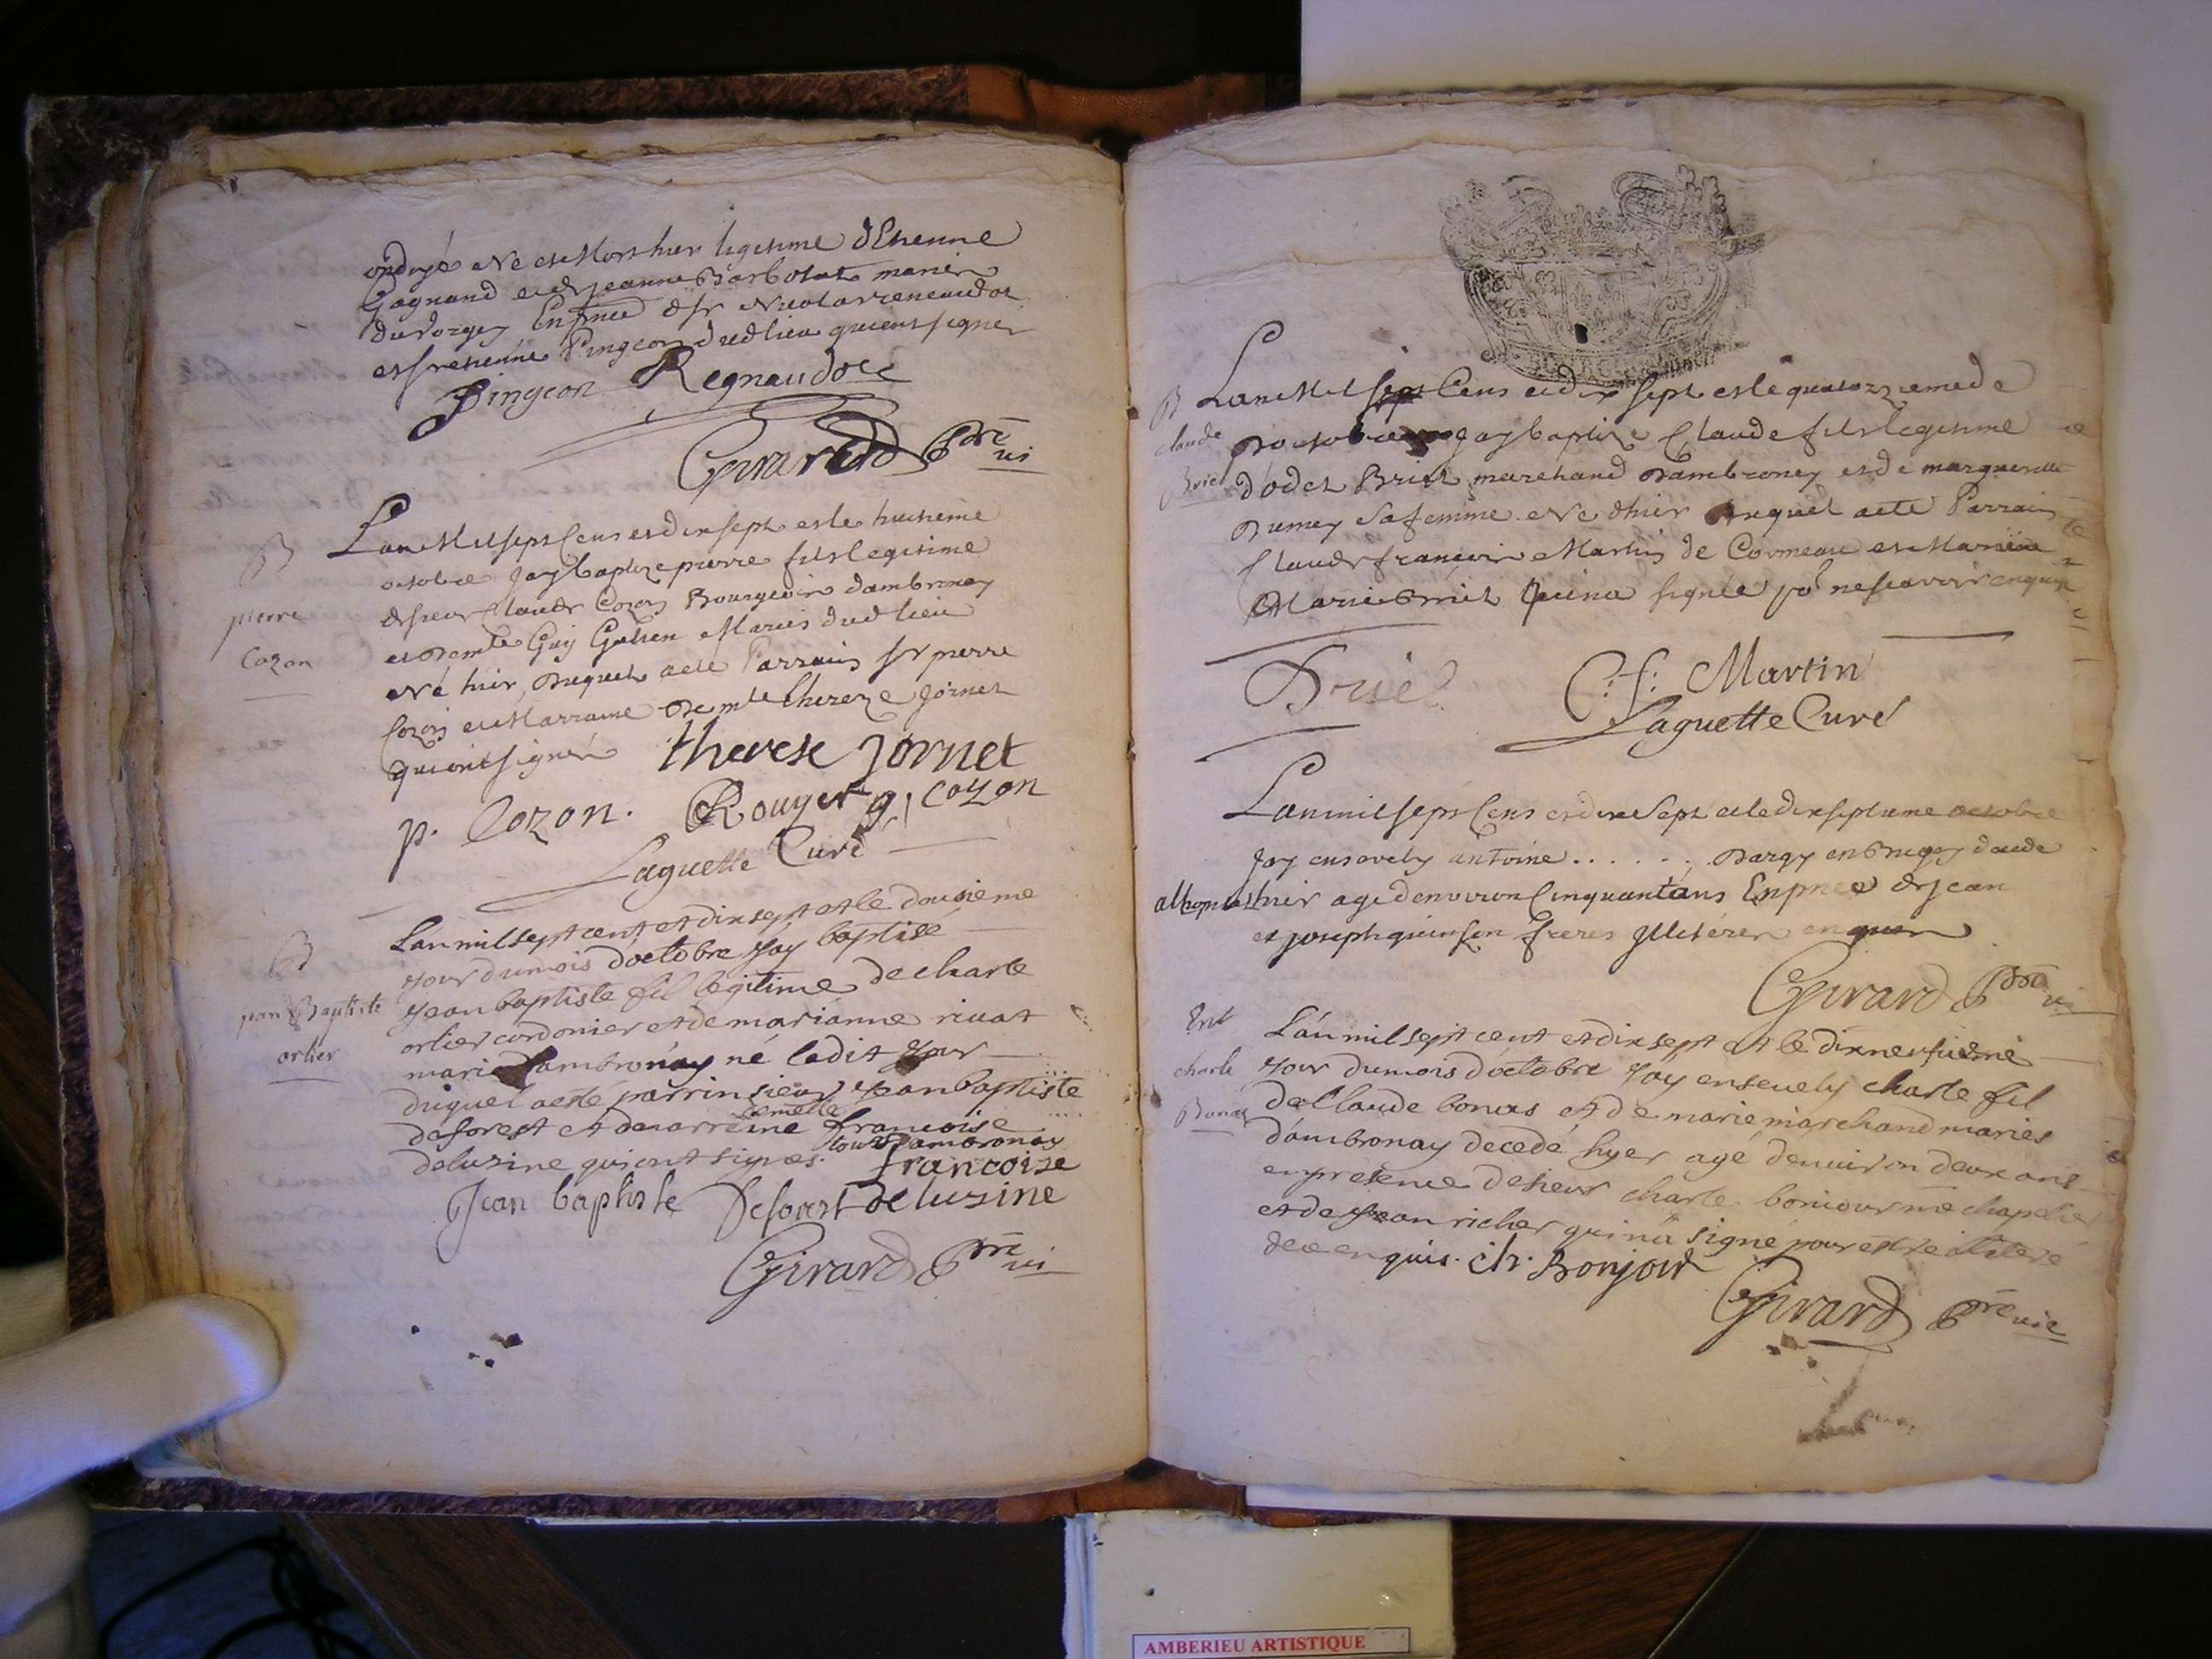 ondoyé Né et Mort hier legitime d'Etienne
Gagnand et de jeanne Barbotat mariés
du Vorgey En pnce de sr Nicolas reneaudot
et sr etienne Pingeon dudlieu qui ont signés
Pingeon Regnaudoct
Girard Pbre vi
B
pierre
Cozon
Lan Mil sept Cens et dix sept et le huitieme
octobre Jay baptize pierre fils legitime
de sieur Claude Cozon Bourgeois dambronay
et Demlle Guy Gallien Mariés dud lieu
Né hier, Duquel a esté Parrain sr pierre
Cozon et Marraine Demlle Thereze Jornet
qui ont signés therese jornet
p. Cozon. Rouyer g, cozon
Laguette Curé
B
jean Baptiste
orlier
Lan mil sept cent et dix sept et le dousieme
jour du mois d'octobre jay baptisé
jean baptiste fil legitime de charle
orlier cordonier et de marianne rivat
mariés d'ambronay né ledit jour
duquel a esté parrin sieur jean baptiste
deforest et de marreine demelle francoise
delusine qui ont signes. tous d'ambronay
francoise
Jean baptiste Deforest delusine
Girard Pbre vi
B
claude
Briet
Lan Mil sept Cens et dix sept et le quatorzieme de
D'octobre jay baptize Claude fils legitime
d'odet Briet marchand Dambroney et de marguerite
Dumey Sa femme Né d'hier Duquel a eté Parrain
Claude francois Martin de Cormeau et Marraine
Marie Briet qui na signée po nescavoir enquis
Brie C: f: Martin
Laguette Curé
Lan mil sept Cens et dix Sept et le dix septieme octobre
Jay ensevely antoine . . . . . . Dargy en Bugey décédé
a lhopital hier agé denviron Cinquant ans En pnce de Jean
et joseph quinson freres Illitérés enquis
Girard Pbre vi
Ent
charle
Bonas
Lán mil sept cent et dix sept et le dixneufieme
jour du mois d'octobre jay ensevely charle fil
de Claude bonas et de marie marchand mariés
d'ambronay decedé hyer agé d'environ deux ans
en presence de sieur charle bonjour me chapelier
et de jean richer qui na signé pour estre illiteré
de ce enquis. ch. Bonjour
Girard Pbre vic
AMBERIEU ARTISTIQUE